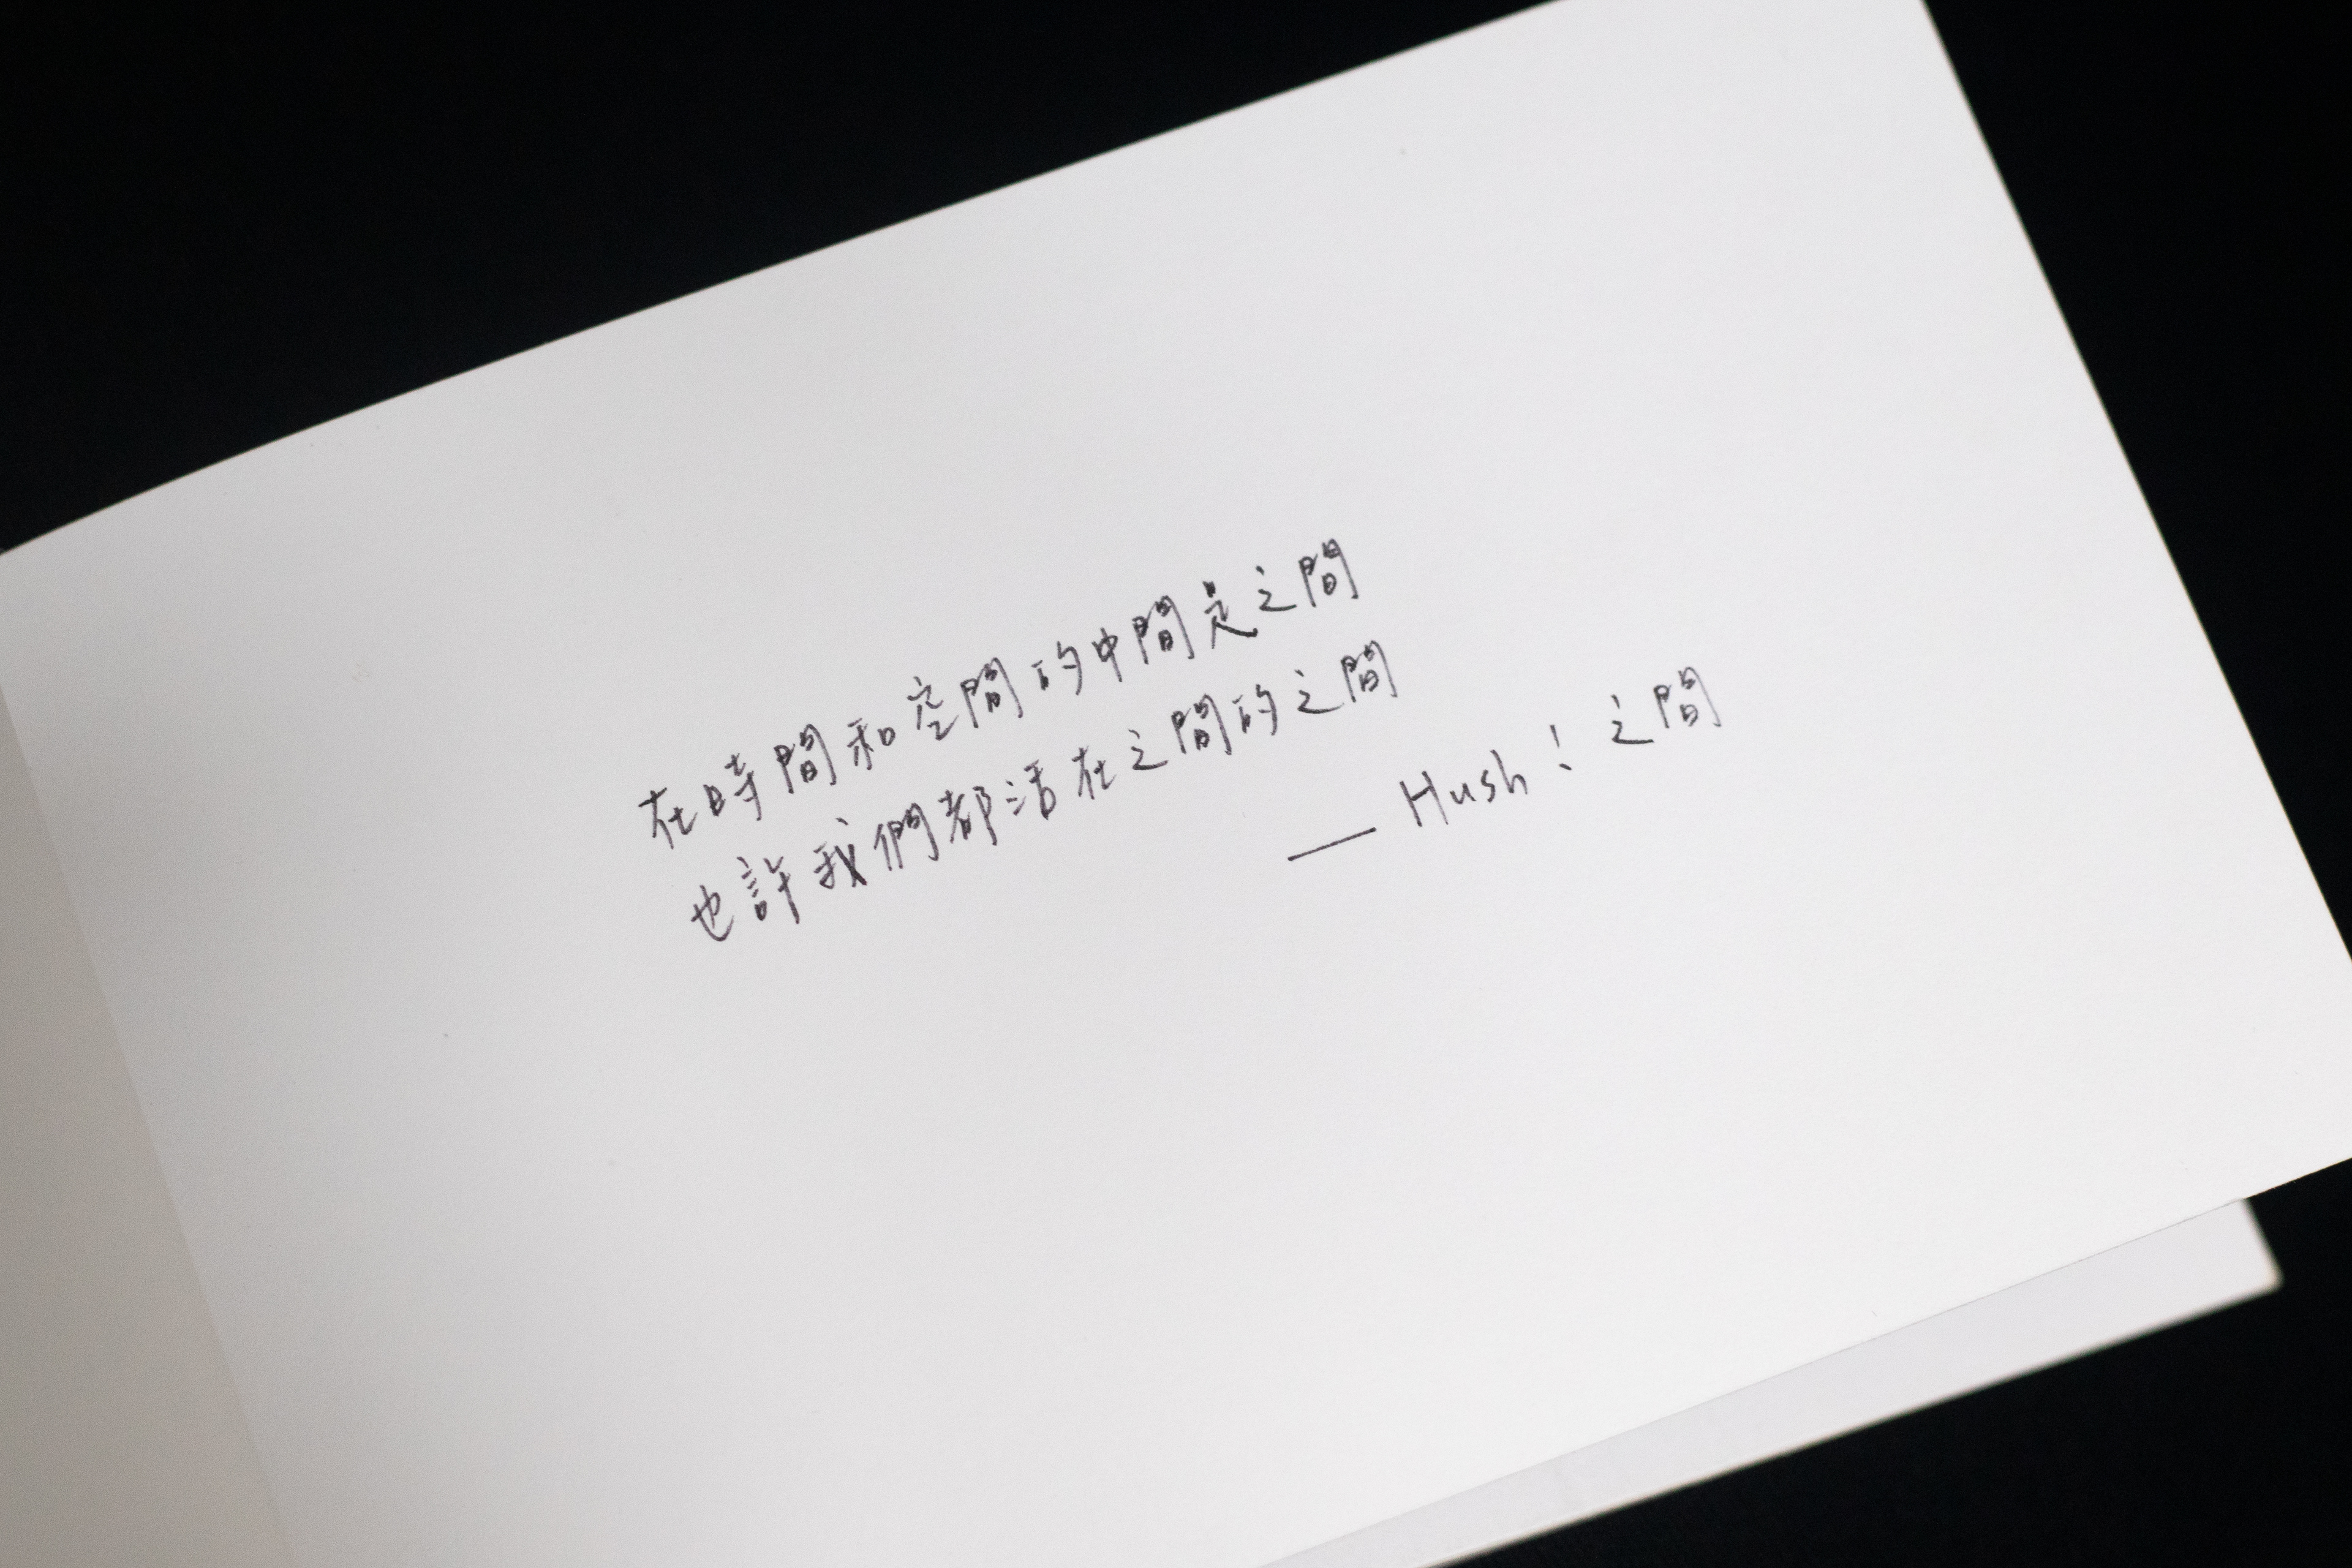 在時間和空間的中間是之間
也許我們都活在之間的之間
—— Hush! 之間